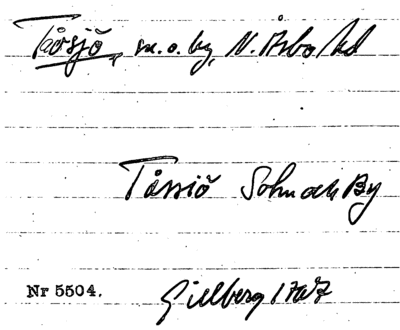 Tåsjö, sn. o. by, N. Åsbo hd
Tåssiö Sohn och By
Nr 5504. Gillberg